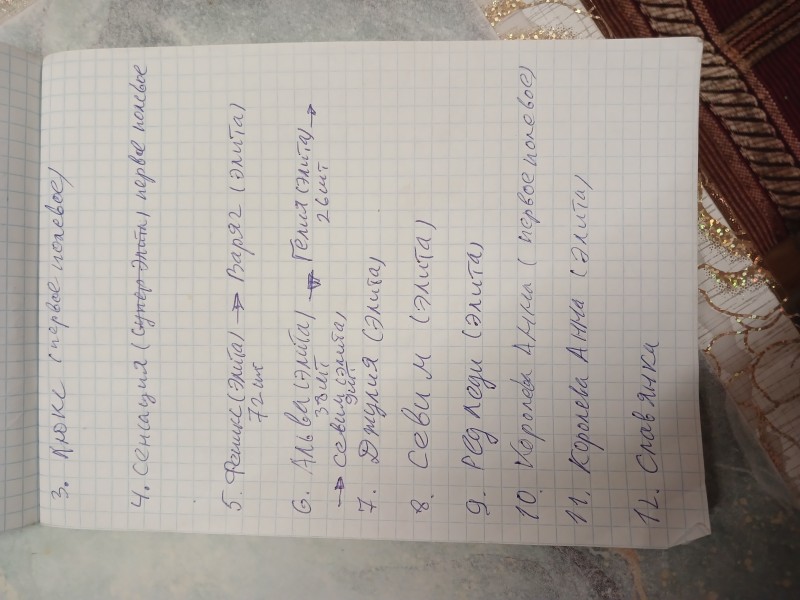 3. Крокс (первое полевое)
4. Сенсация (супер элита) первое полевое
5. Феникс (элита) → Варяг (элита)
72 шт
6. Альва (элита) → Гелия (элита) →
38 шт 26 шт
→ Севим (элита)
9 шт
7. Джулия (элита)
8. Севим (элита)
9. Ред Леди (элита)
10. Королева Анна (первое полевое)
11. Королева Анна (элита)
12. Славянка